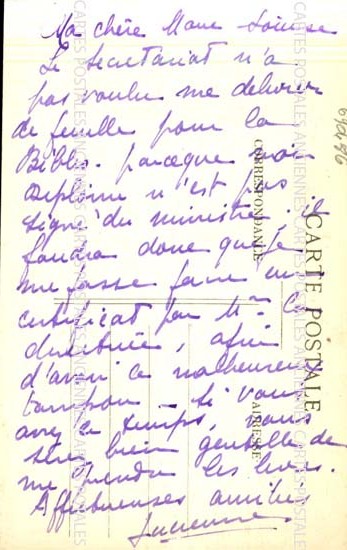 Ma chère Marie Louise
Le secrétariat n'a
pas voulu me délivrer
de feuille pour la
Biblio. parceque mon
Diplôme n'est pas
signé du ministre. il
faudra donc que je
me fasse faire un
certificat par Mme C
directrice, afin
d'avoir ce malheureux
tampon – si vous
avez ce temps, vous
serez bien gentille de
me rendre les livres.
Affectueuses amitiés
Lucienne
CARTE POSTALE
CORRESPONDANCE
ADRESSE
CARTES POSTALES ANCIENNES
CARTES POSTALES ANCIENNES